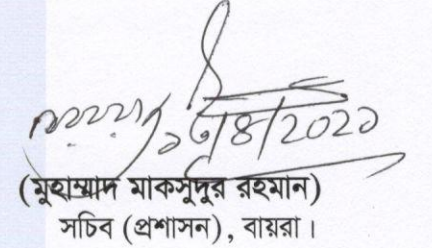 /৪/2021
(মুহাম্মাদ মাকসুদুর রহমান)
সচিব (প্রশাসন), বায়রা।